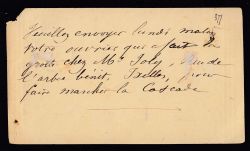 Veuillez envoyer lundi matin
votre ouvrier qui a fait la
grotte chez Mr Joly, rue de
l'arbre bénit, Ixelles, pour
faire marcher la Cascade